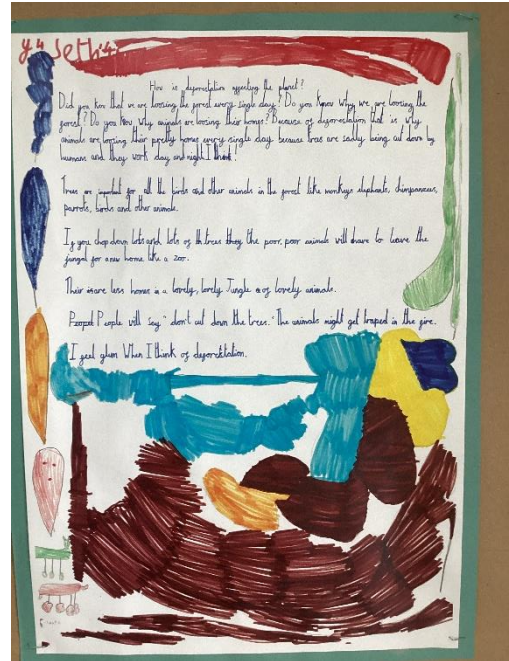 y4 Seth 4
How is deforestation affecting the planet?
Did you kno that we are loosing the forest every single day? Do you know why we are loosing the
forest? Do you know why animals are loosing their homes? Because of deforestation that is why
animals are loosing their pretty home every single day because trees are sadly being cut down by
humans and they work day and night I think!
Trees are important for all the birds and other animals in the forest like monkeys elephants, chimpanzees,
parrots, birds and other animals.
If you chop down lots and lots of th trees they the poor, poor animals will have to leave the
jungal for a new home like a zoo.
Their is are less homes in a lovely, lovely Jungle of lovely animals.
People will say "don't cut down the trees." The animals might get traped in the fire.
I feel glum When I think of deforestation.